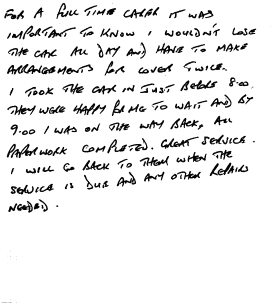 FOR A FULL TIME CARER IT WAS
IMPORTANT TO KNOW I WOULDN'T LOSE
THE CAR ALL DAY AND HAVE TO MAKE
ARRANGEMENTS FOR COVER TWICE.
I TOOK THE CAR IN JUST BEFORE 8:00.
THEY WERE HAPPY FOR ME TO WAIT AND BY
9:00 I WAS ON THE WAY BACK, ALL
PAPERWORK COMPLETED. GREAT SERVICE.
I WILL GO BACK TO THEM WHEN THE
SERVICE IS DUE AND ANY OTHER REPAIRS
NEEDED.